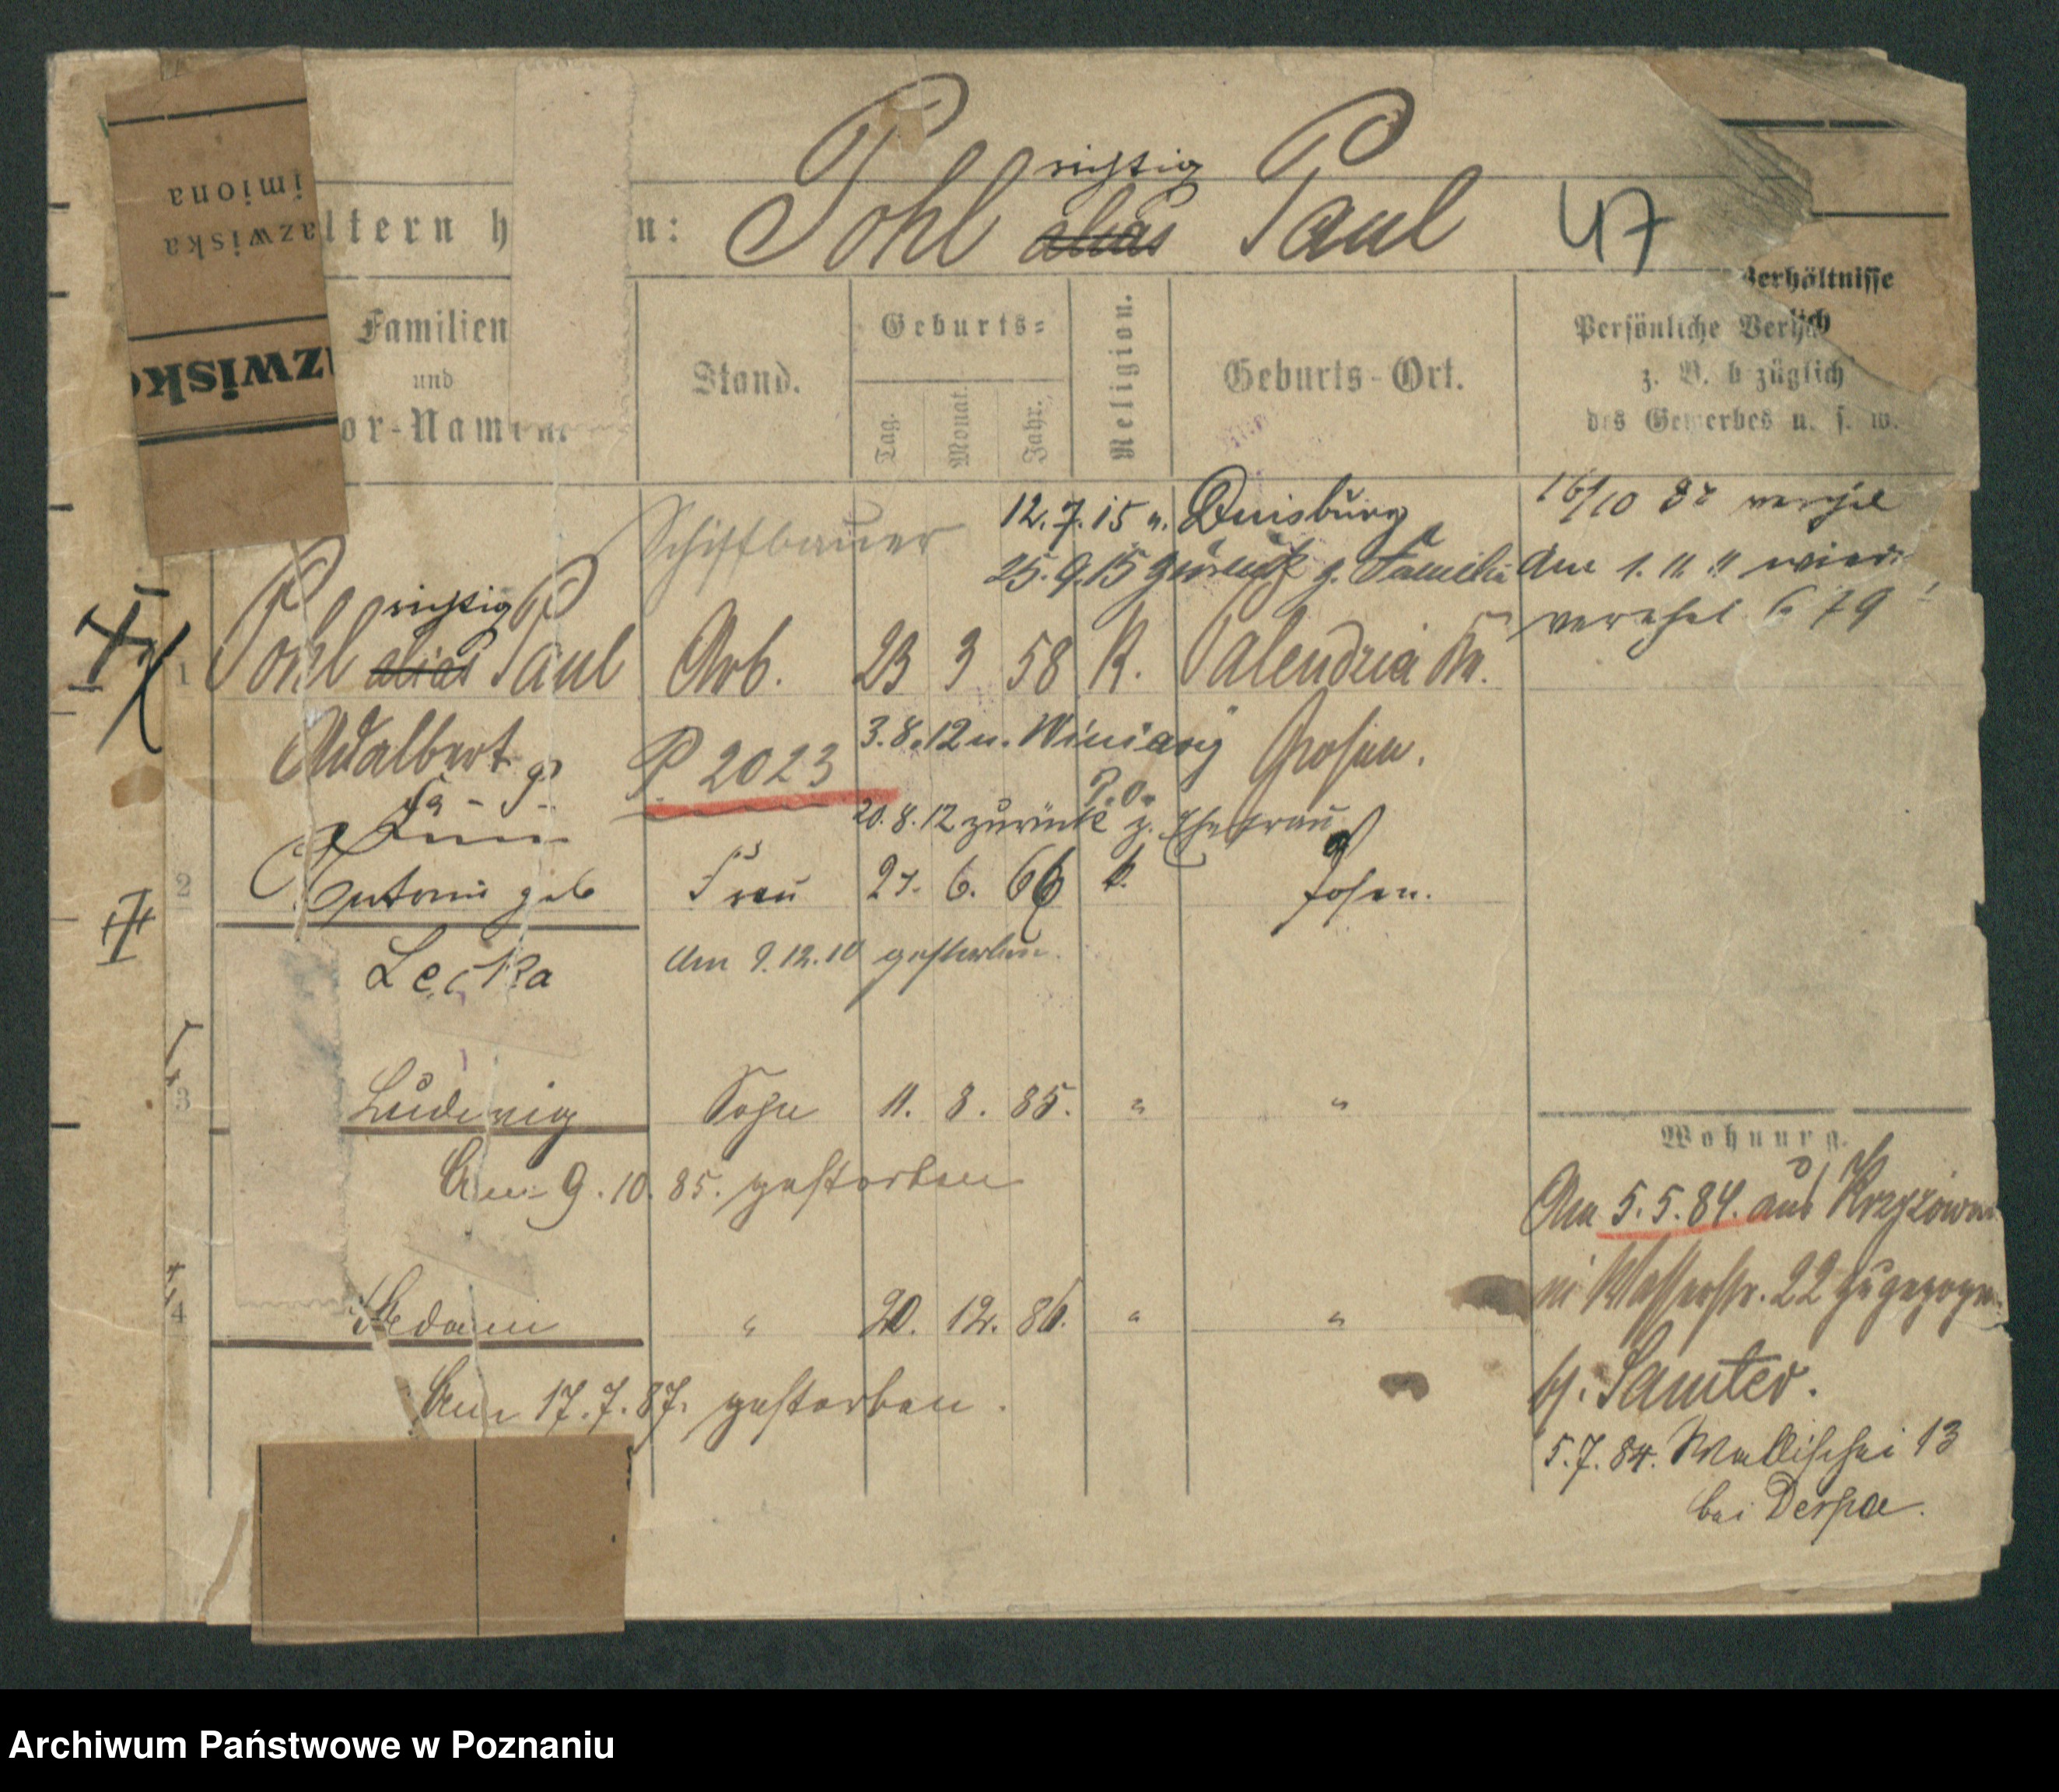 imiona
azwiska
azwisko
ltern h n: Pohl richtig alias Paul 47
Verhältnisse
Familien
und
or-Namen.
Stand.
Geburts-
Tag.
Monat.
Jahr.
Religion.
Geburts-Ort.
Persönliche
z. B. b züglich
des Gewerbes u. s. w.
Schiffbauer
12.7.15 n. Duisburg
25.9.15 zurück z. Familie
16/10 82
den 1. 11. "
79
1 Pohl richtig alias Paul Arb. 23 3 58 K.
Adalbert
P 2023
3.8.12 n. Winiary
Posen.
P.O.
20.8.12 zurück z. Ehefrau
2 Antonie geb Frau 27. 6. 66 k. Posen.
Lecka
Am 9.12.10 gestorben.
3 Ludwig Sohn 11. 8. 85. " "
Am 9.10.85. gestorben
4 " 20. 12. 86. " "
Am 17.7.87. gestorben.
Wohnung.
Am 5.5.84. aus
Wasserstr. 22 zugezogen
bj. Samter.
5.7.84. Wallischei 13
bei Derpa.
Archiwum Państwowe w Poznaniu